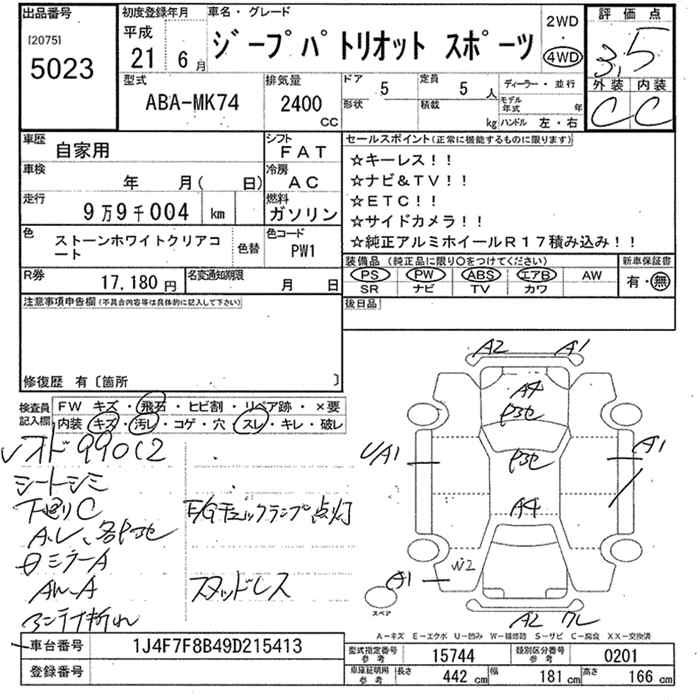 出品番号
[2075]
5023
初度登録年月
平成
21 6月
車名・グレード
ジープパトリオット スポーツ
2WD
4WD
評価点
3,5
外装 内装
C C
型式
ABA-MK74
排気量
2400
CC
ドア 5
形状
定員 5 人
積載 kg
ディーラー・並行
モデル年式 年
ハンドル 左・右
車歴
自家用
車検
年 月( 日)
走行
9万9千004 km
色
ストーンホワイトクリアコート
色替
シフト
FAT
冷房
AC
燃料
ガソリン
色コード
PW1
セールスポイント(正常に機能するものに限ります)
☆キーレス!!
☆ナビ&TV!!
☆ETC!!
☆サイドカメラ!!
☆純正アルミホイールR17積み込み!!
R券
17,180円
名変通知期限
月 日
装備品(純正品に限り○をつけてください)
PS PW ABS エアB AW
SR ナビ TV カワ
新車保証書
有・無
注意事項申告欄(不具合内容等は具体的に記入して下さい)
後日品
修復歴 有〔箇所 〕
検査員記入欄
FW キズ・飛石・ヒビ割・リペア跡・×要
内装・キズ・汚レ・コゲ・穴・スレ・キレ・破レ
シートシミ
下廻りC
E/Gチェックランプ点灯
スタッドレス
A2 A1
A4
U/A1
A1
A4
A1
W2
A2
スペア
A-キズ E-エクボ U-凹み W-補修跡 S-サビ C-腐食 XX-交換済
車台番号
1J4F7F8B49D215413
登録番号
型式指定番号 参考
15744
類別区分番号 参考
0201
車庫証明用 参考
長さ 442 cm
幅 181 cm
高さ 166 cm